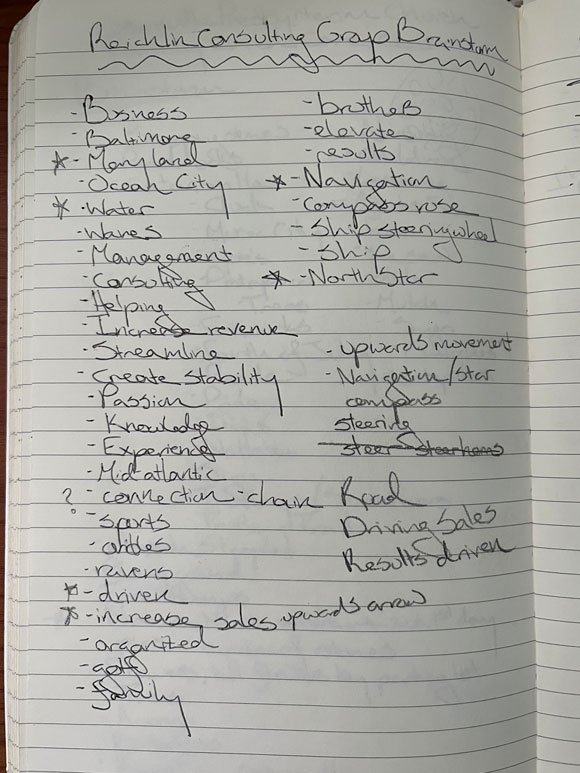 Reichlin Consulting Group Brainstorm
- Business
- Baltimore
* - Maryland
- Ocean City
* - Water
- Waves
- Management
- Consulting
- Helping
- Increase revenue
- Streamline
- Create Stability
- Passion
- Knowledge
- Experience
- Mid atlantic
? - connection - chain
- sports
- orioles
- ravens
* - driven
* - increase sales upwards arrow
- organized
- golf
- family
- brothers
- elevate
- results
* - Navigation
- Compass rose
- Ship steering wheel
- Ship
* - North Star
- upwards movement
- Navigation/star
compass
steering
steer
Road
Driving Sales
Results driven